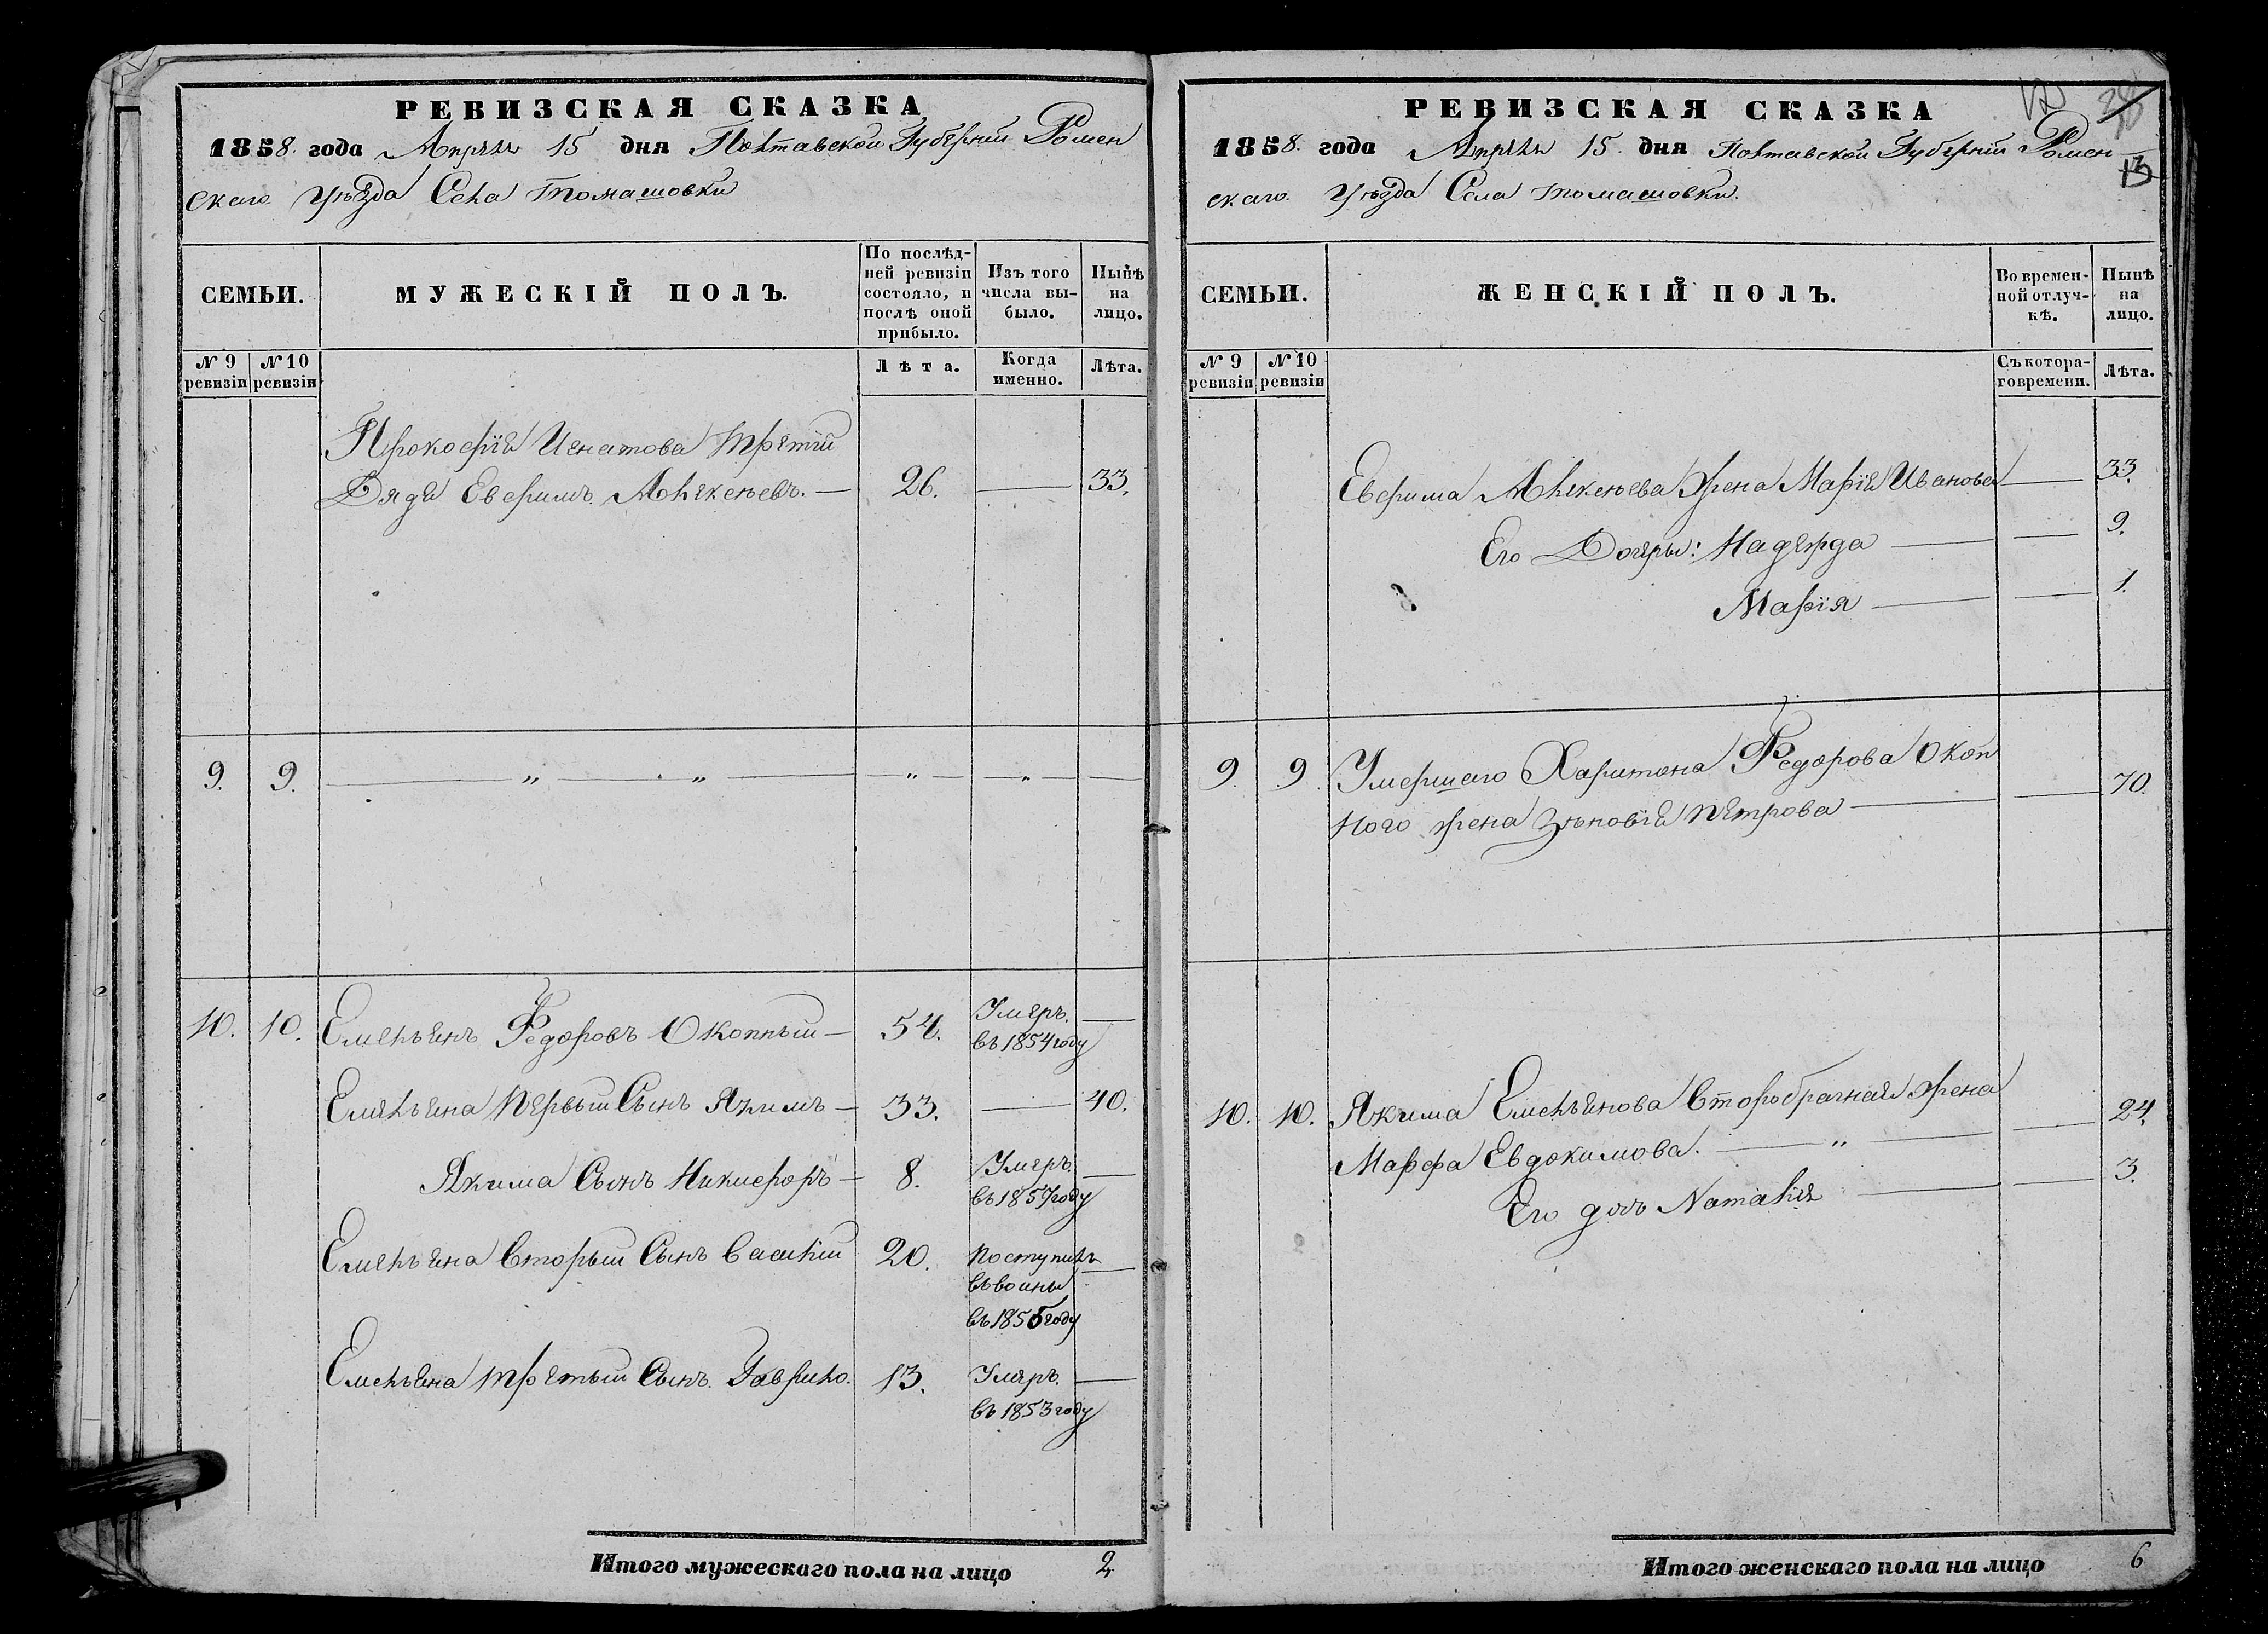 РЕВИЗСКАЯ СКАЗКА
1858. года Апреля 15 дня Полтавской Губерніи Ромен
скаго Уѣзда Села Томашовки
СЕМЬИ.
МУЖЕСКІЙ ПОЛЪ.
По послѣд-
ней ревизіи
состояло, и
послѣ оной
прибыло.
Изъ того
числа вы-
было.
Нынѣ
на
лицо.
№ 9
ревизіи
№ 10
ревизіи
Лѣта.
Когда
именно.
Лѣта.
Прокофія Игнатова третій
Дядя Евфимъ Алексѣевъ. — 26. — 33.
9. 9. — „ — „ — „ — „ —
10. 10. Емельянъ Федоровъ Окопный — 54. Умеръ. —
въ 1854 году
Емельяна первый Сынъ Якимъ — 33. — 40.
Якима Сынъ Никифоръ — 8. Умеръ —
въ 1857 году
Емельяна Вторый Сынъ Василій 20. Поступилъ —
въ воины
въ 1855 году
Емельяна третый Сынъ Гаврило. 13. Умеръ. —
въ 1853 году
Итого мужескаго пола на лицо 2.
РЕВИЗСКАЯ СКАЗКА
1858. года Апреля 15. дня Полтавской Губерніи Ромен
13
скаго. Уѣзда Села Томашовки.
СЕМЬИ.
ЖЕНСКІЙ ПОЛЪ.
Во времен-
ной отлуч-
кѣ.
Нынѣ
на
лицо.
№ 9
ревизіи
№ 10
ревизіи
Съ котора-
го времени.
Лѣта.
Евфима Алексѣева Жена Марія Иванова — 33.
Его Дочеры: Надежда — — 9.
Марія — — 1.
9. 9. Умершаго Харитона Федорова Окоп
ного жена Зѣновія Петрова — — 70.
10. 10. Якима Емельянова Второбрачная Жена
Марфа Евдокимова. — „ — — 24.
Его дочь Наталія — — 3.
Итого женскаго пола на лицо 6